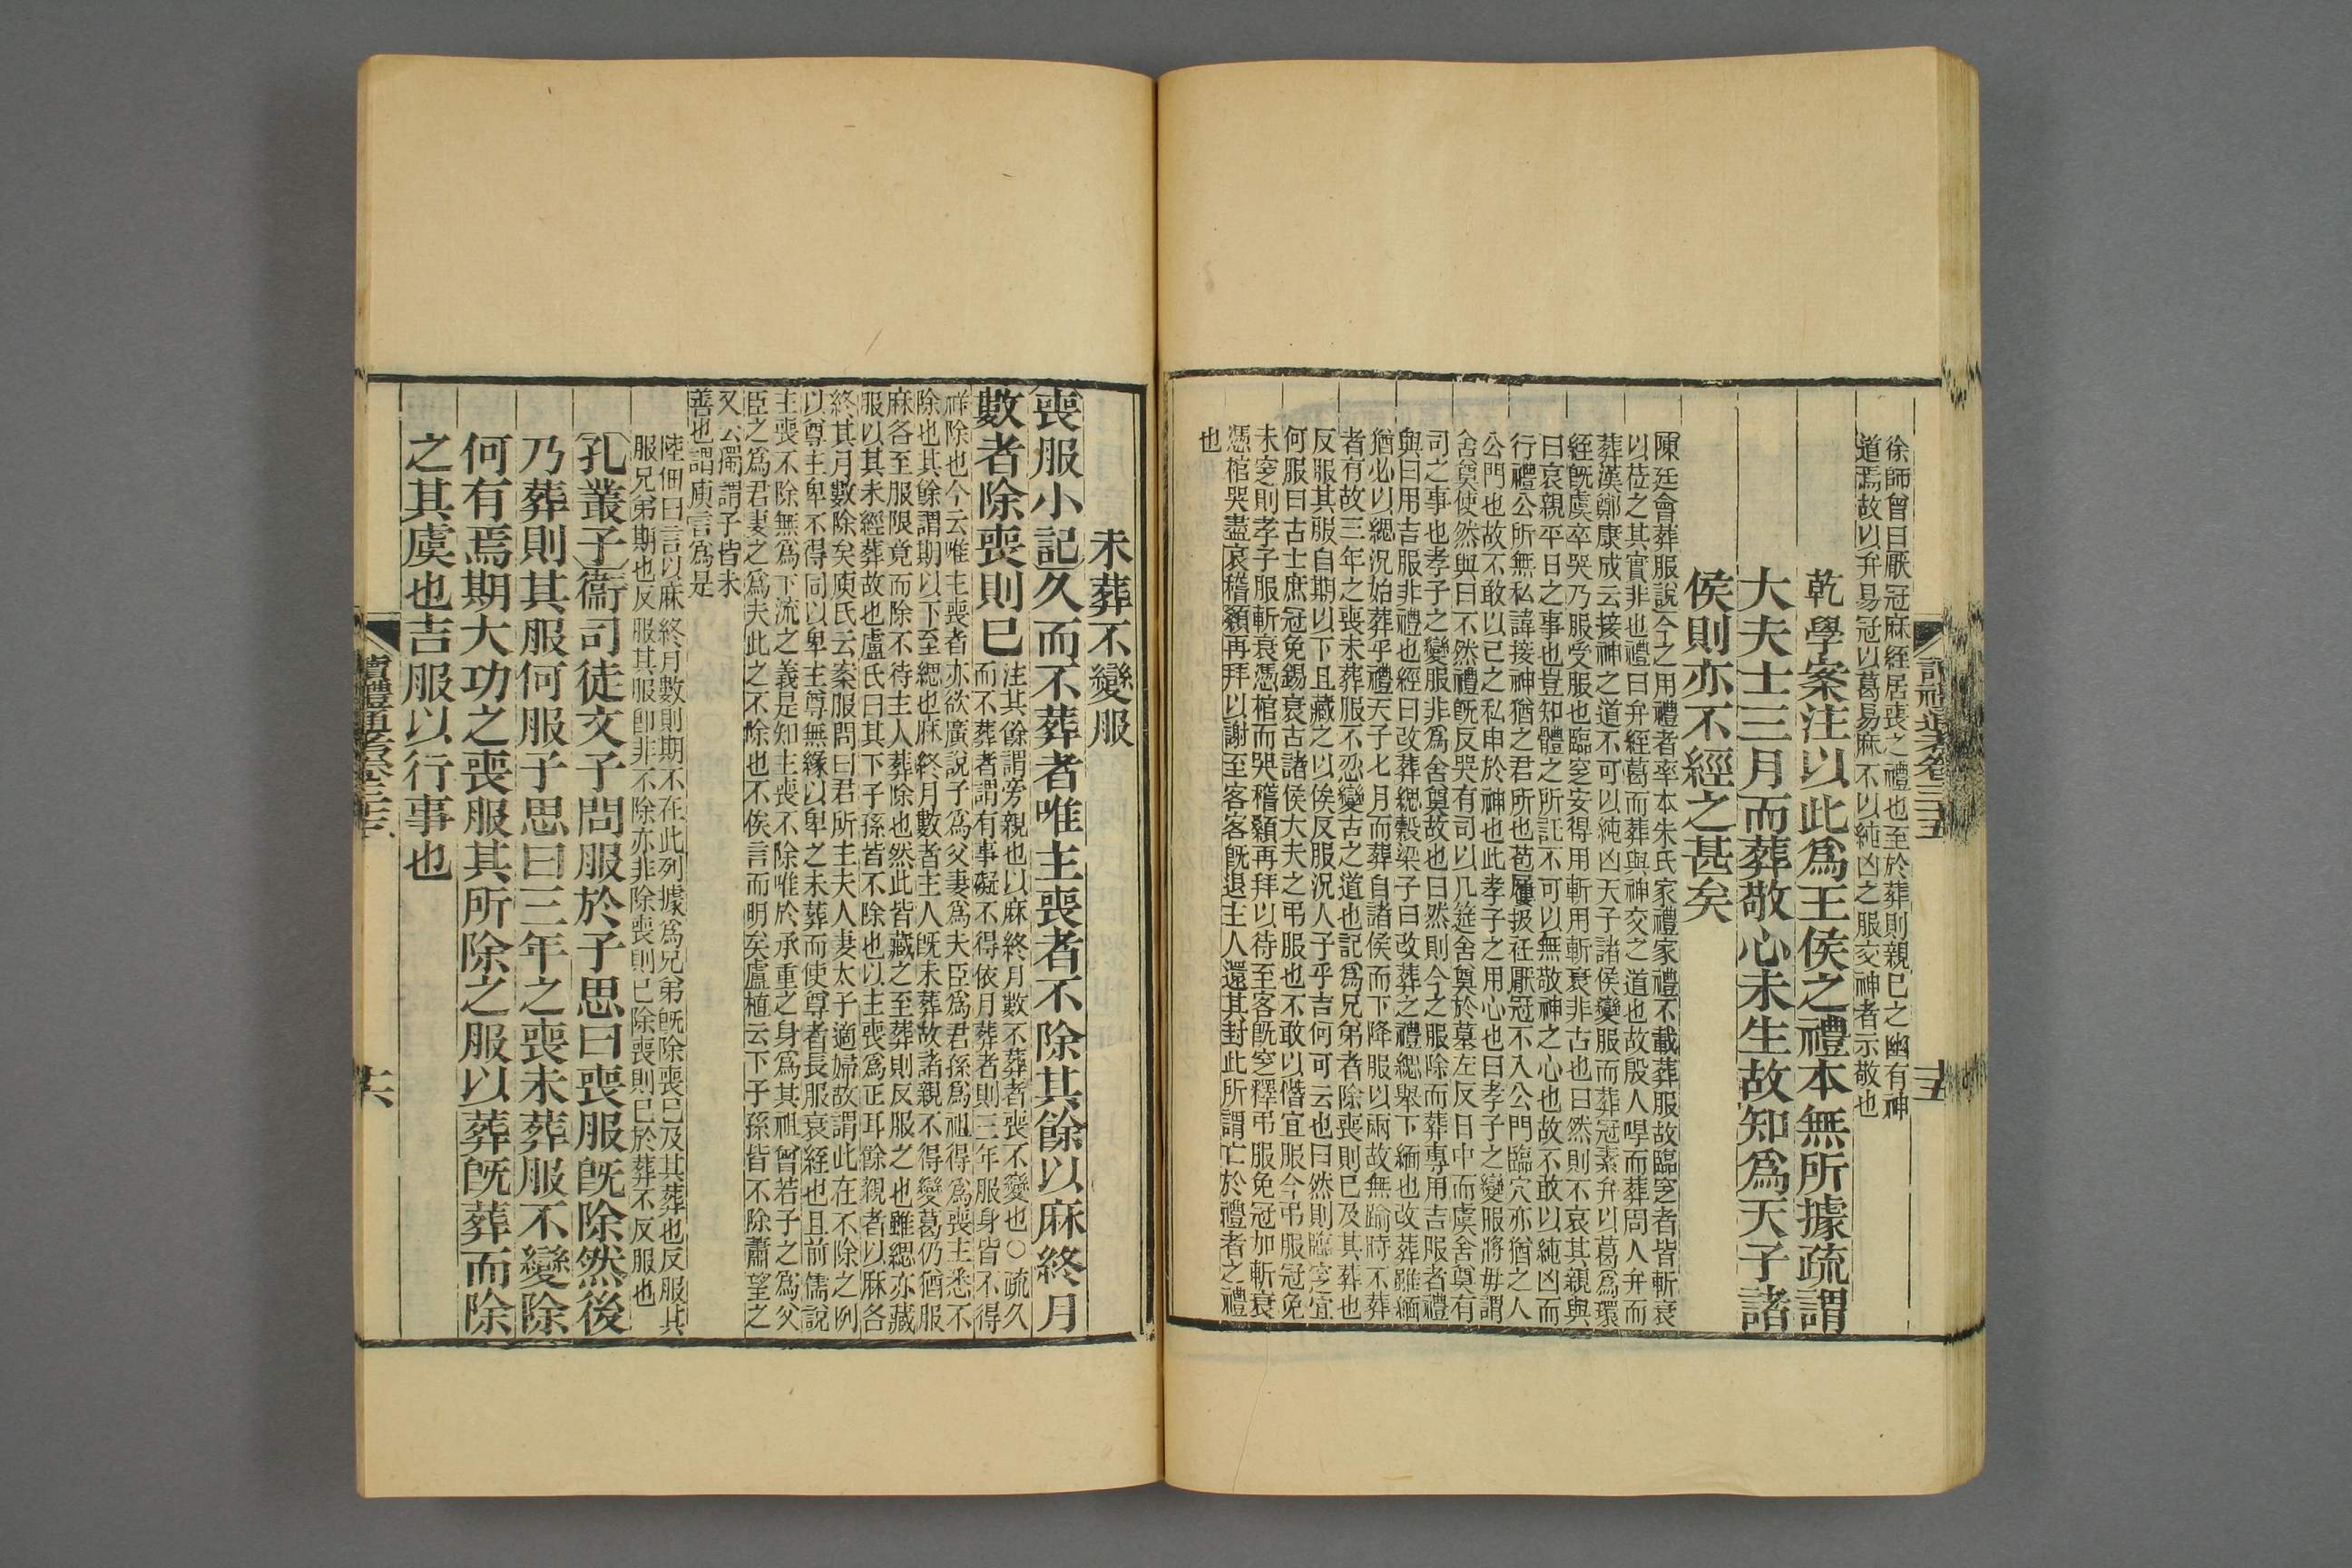 徐師曾曰厭冠麻絰居喪之禮也至於葬則親已之幽有神
道焉故以弁易冠以葛易麻不以純凶之服交神者示敬也
乾學案注以此爲王侯之禮本無所據疏謂
大夫士三月而葬敬心未生故知爲天子諸
侯則亦不經之甚矣
陳廷會葬服說今之用禮者率本朱氏家禮家禮不載葬服故臨窆者皆斬衰
以莅之其實非也禮曰弁絰葛而葬與神交之道也故殷人哻而葬周人弁而
葬漢鄭康成云接神之道不可以純凶天子諸侯變服而葬冠素弁以葛爲環
絰旣虞卒哭乃服受服也臨窆安得用斬用斬衰非古也曰然則不哀其親與
曰哀親平日之事也豈知體之所託不可以無敬神之心也故不敢以純凶而
行禮公所無私諱接神猶之君所也苞屨扱衽厭冠不入公門臨穴亦猶之人
公門也故不敢以己之私申於神也此孝子之用心也曰孝子之變服將毋謂
舍奠使然與曰不然禮旣反哭有司以几筵舍奠於墓左反日中而虞舍奠有
司之事也孝子之變服非爲舍奠故也曰然則今之服除而葬專用吉服者禮
與曰用吉服非禮也經曰改葬緦穀梁子曰改葬之禮緦舉下緬也改葬雖緬
猶必以緦況始葬乎禮天子七月而葬自諸侯而下降服以兩故無踰時不葬
者有故三年之喪未葬服不忍變古之道也記爲兄弟者除喪則已及其葬也
反服其服自期以下且藏之以俟反服況人子乎吉何可云也曰然則臨窆宜
何服曰古士庶冠免錫衰古諸侯大夫之弔服也不敢以僭宜服今弔服冠免
未窆則孝子服斬衰憑棺而哭稽顙再拜以待至客旣窆釋弔服免冠加斬衰
憑棺哭盡哀稽顙再拜以謝至客客旣退主人還其封此所謂亡於禮者之禮
也
讀禮通考卷三五
十五
未葬不變服
喪服小記久而不葬者唯主喪者不除其餘以麻終月
數者除喪則已
注其餘謂旁親也以麻終月數不葬者喪不變也○疏久
而不葬者謂有事礙不得依月葬者則三年服身皆不得
祥除也今云唯主喪者亦欲廣說子爲父妻爲夫臣爲君孫爲祖得爲喪主悉不
除也其餘謂期以下至緦也麻終月數者主人旣未葬故諸親不得變葛仍猶服
麻各至服限竟而除不待主人葬除也然此皆藏之至葬則反服之也雖緦亦藏
服以其未經葬故也盧氏曰其下子孫皆不除也以主喪爲正耳餘親者以麻各
終其月數除矣庾氏云案服問曰君所主夫人妻太子適婦故謂此在不除之例
以尊主卑不得同以卑主尊無緣以卑之未葬而使尊者長服衰絰也且前儒說
主喪不除無爲下流之義是知主喪不除唯於承重之身爲其祖曾若子之爲父
臣之爲君妻之爲夫此之不除也不俟言而明矣盧植云下子孫皆不除蕭望之
又云獨謂子皆未
善也謂庾言爲是
陸佃曰言以麻終月數則期不在此列據爲兄弟旣除喪已及其葬也反服其
服兄弟期也反服其服卽非不除亦非除喪則已除喪則已於葬不反服也
孔叢子衞司徒文子問服於子思曰喪服旣除然後
乃葬則其服何服子思曰三年之喪未葬服不變除
何有焉期大功之喪服其所除之服以葬旣葬而除
之其虞也吉服以行事也
讀禮通考卷三五
十六